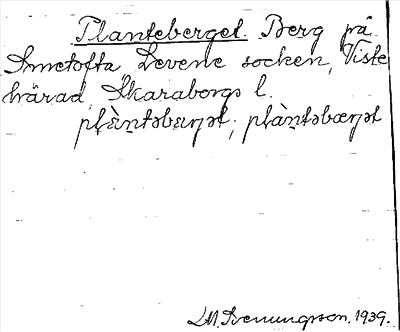 Planteberget. Berg på
Smetofta Levene socken, Viste
härad, Skaraborgs l.
plàntəbærjət; plàntəbœrjət
1939.